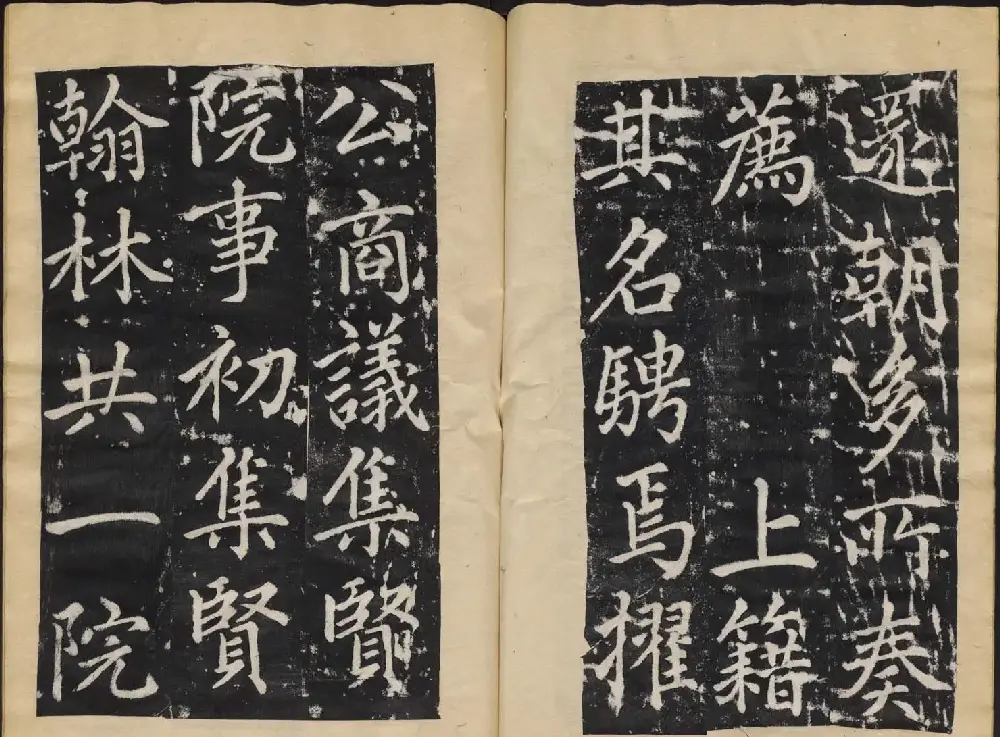 還朝多所奏
薦上籍
其名騁焉擢
公商議集賢
院事初集賢
翰林共一院